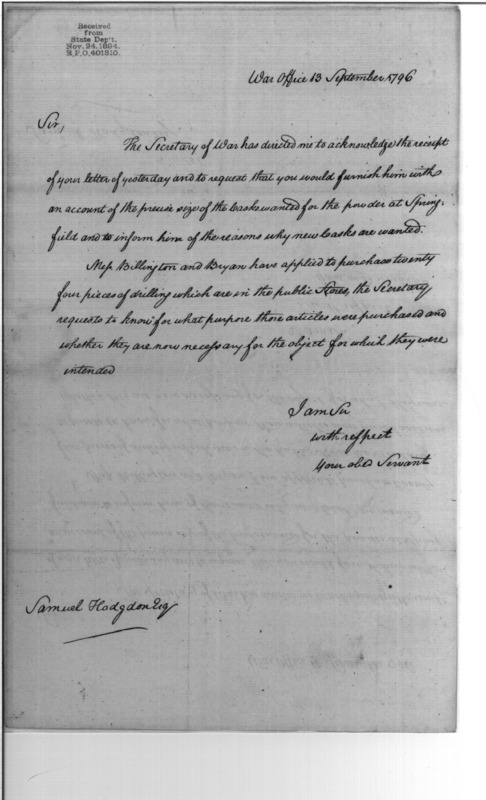 Received
from
State Dep't.
Nov. 24, 1894.
R.P.O. 401310.
War Office 13 September 1796
Sir,
The Secretary of War has directed me to acknowledge the receipt
of your letter of yesterday and to request that you would furnish him with
an account of the precise size of the Casks wanted for the powder at Spring-
field and to inform him of the reasons why new Casks are wanted.
Mess Billington and Bryan have applied to purchase twenty
four pieces of drilling which are in the public Stores, the Secretary
requests to know for what purpose those articles were purchased and
whether they are now necessary for the object for which they were
intended
I am Sir
with respect
your obed Servant
Samuel Hodgdon Esq